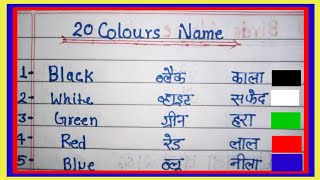 20 Colours Name
1- Black ब्लैक काला
2- White व्हाइट सफेद
3- Green ग्रीन हरा
4- Red रेड लाल
5- Blue ब्लू नीला